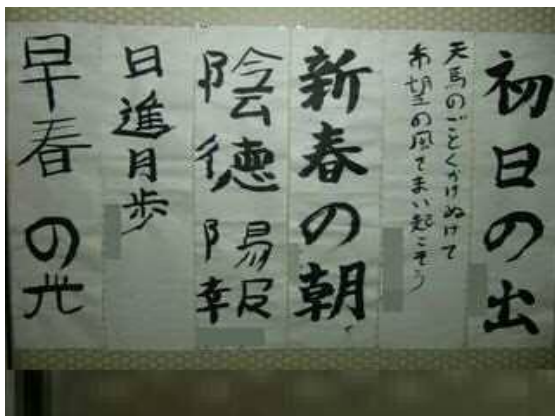 初日の出
天馬のごとくかけぬけて
希望の風でまい起こそう
新春の朝
陰徳陽報
日進月歩
早春の光